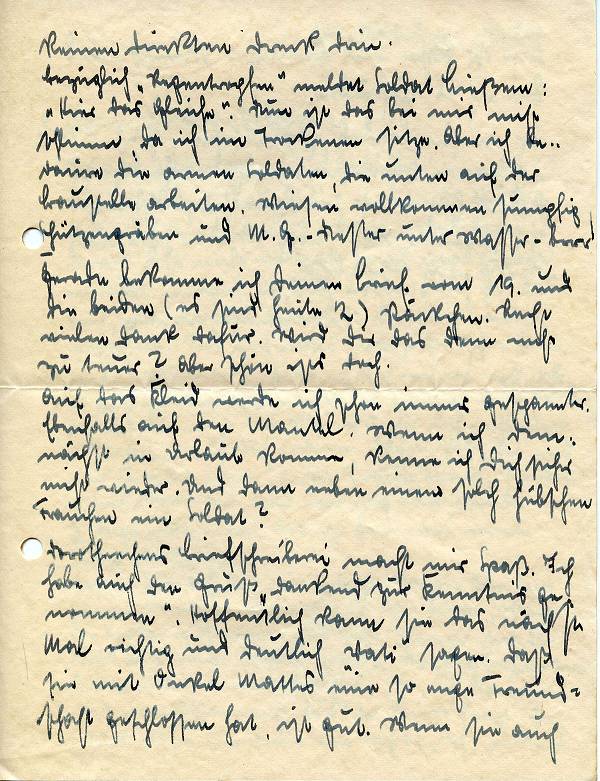 keinen direkten Dreck drin.
bezüglich „Regentropfen" meldet Soldat Ließem:
„Hier das Gleiche". Nun ist das bei mir nicht
schlimm, da ich im Trockenen sitze. Aber ich be-
daure die armen Soldaten, die unten auf der
Baustelle arbeiten. Wiesen vollkommen sumpfig,
Schützengräben und M.G.-Nester unter Wasser - brrr!
Gerade bekomme ich Deinen Brief vom 19. und
die beiden (es sind heute 2) Päckchen. Recht
vielen Dank dafür. Wird Dir das denn nicht
zu teuer? Aber schön ists doch.
Auf das Kleid werde ich schon immer gespannter.
Ebenfalls auf den Mantel. Wenn ich dem-
nächst in Urlaub komme, kenne ich Dich sicher
nicht wieder. Und dann neben einem solch hübschen
Frauchen ein Soldat?
Dorotheechens Briefschreiberei macht mir Spaß. Ich
habe auch den Gruß „dankend zur Kenntnis ge
nommen". Hoffentlich kann sie das nächste
Mal richtig und deutlich „Vati" sagen. Daß
sie mit Onkel Mattes eine so enge Freund-
schaft geschlossen hat, ist gut. Wenn sie auch